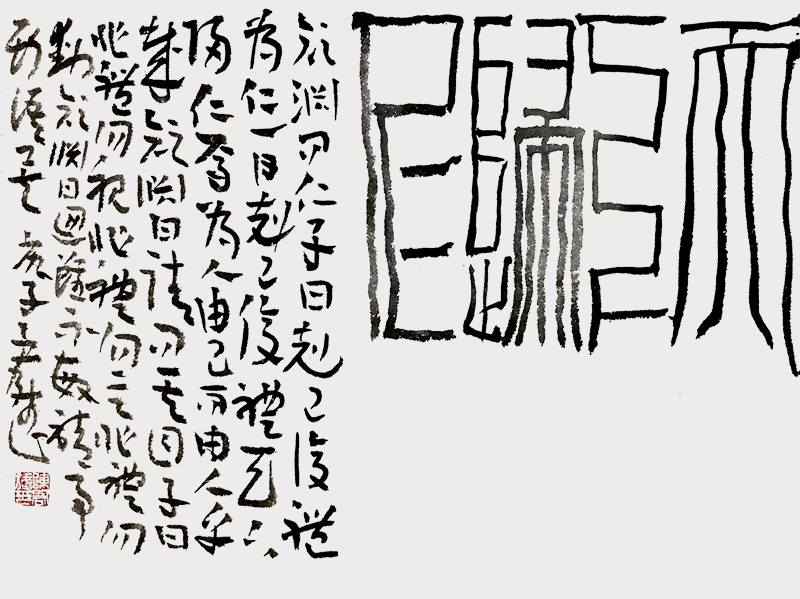 歸
顏淵問仁子曰克己復禮
為仁一日克己復禮天下
歸仁焉為人由己而由人乎
哉顏淵曰請問其目子曰
非禮勿視非禮勿言非禮勿
動顏淵曰回雖不敏請事
斯語矣 庚子